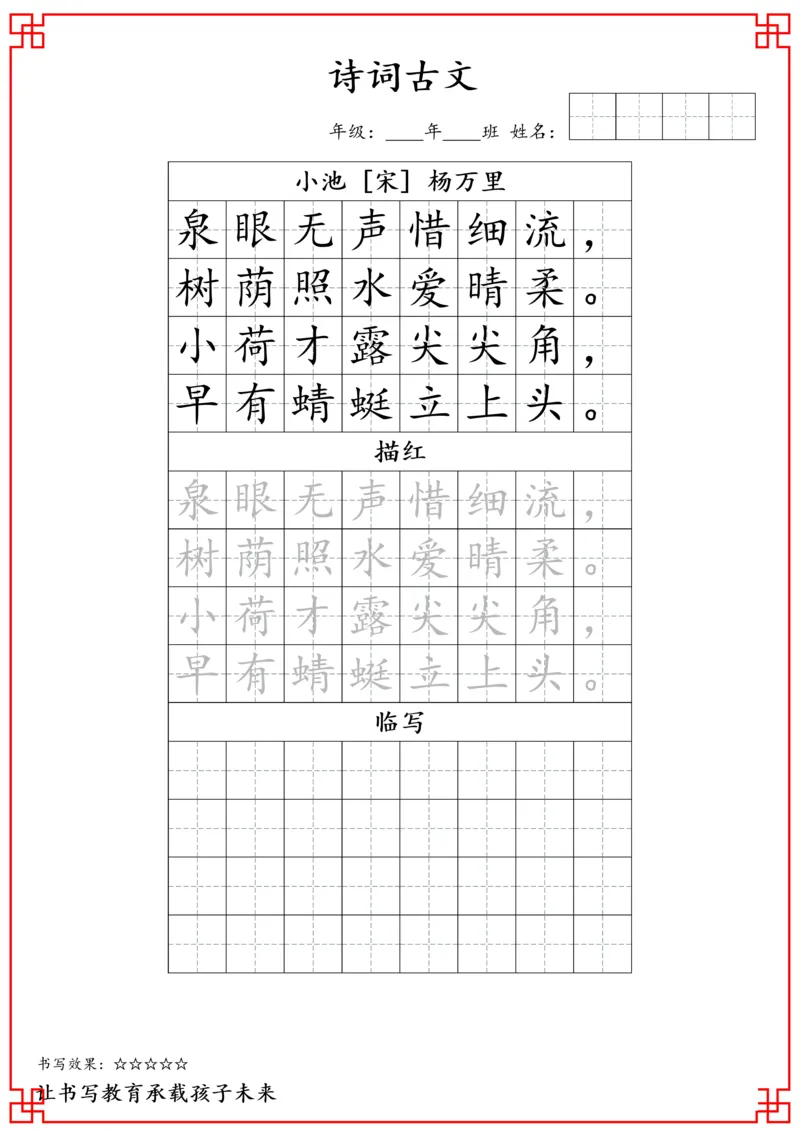 诗词古文
年级：____年____班 姓名：
小池 [宋] 杨万里
泉眼无声惜细流，
树荫照水爱晴柔。
小荷才露尖尖角，
早有蜻蜓立上头。
描红
泉眼无声惜细流，
树荫照水爱晴柔。
小荷才露尖尖角，
早有蜻蜓立上头。
临写
书写效果：☆☆☆☆☆
让书写教育承载孩子未来